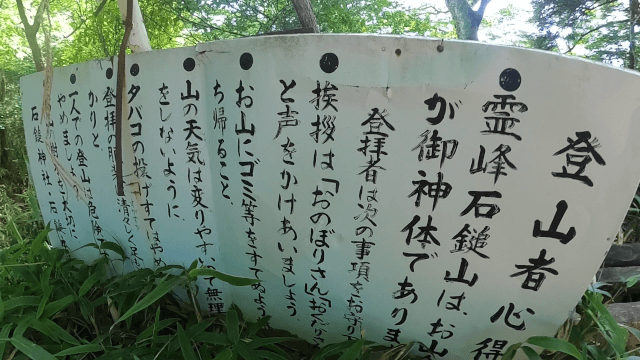 登山者心得
●霊峰石鎚山は、お山
が御神体でありま
登拝者は次の事項をお守り下
●挨拶は「おのぼりさん
と声をかけあいましょう
●お山にゴミ等をすてめよう
ち帰ること、
●山の天気は変りやすいて無理
をしないように
●タバコの投げすてはやめ
●登拝の服
かりと
●一人での登山は危険
やめま
石鎚神社